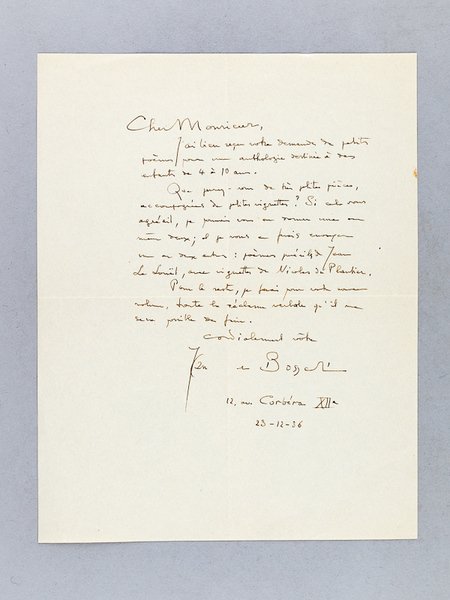 Cher Monsieur,
J'ai bien reçu votre demande de petits
poèmes pour une anthologie destinée à des
enfants de 4 à 10 ans.
Que pensez-vous de très petites pièces,
accompagnées de petites vignettes ? Si cela vous
agréait, je pourrais vous en donner une ou
même deux ; et je vous en ferais envoyer
un ou deux autres : poèmes de Jean
Le Louët, avec vignette de Nicolas de
Pour le reste, je ferai pour votre
volume, toute la réclame verbale qu'il me
sera possible de faire.
Cordialement vôtre
Jean Le
12, Corbéra XIIe
23-12-36